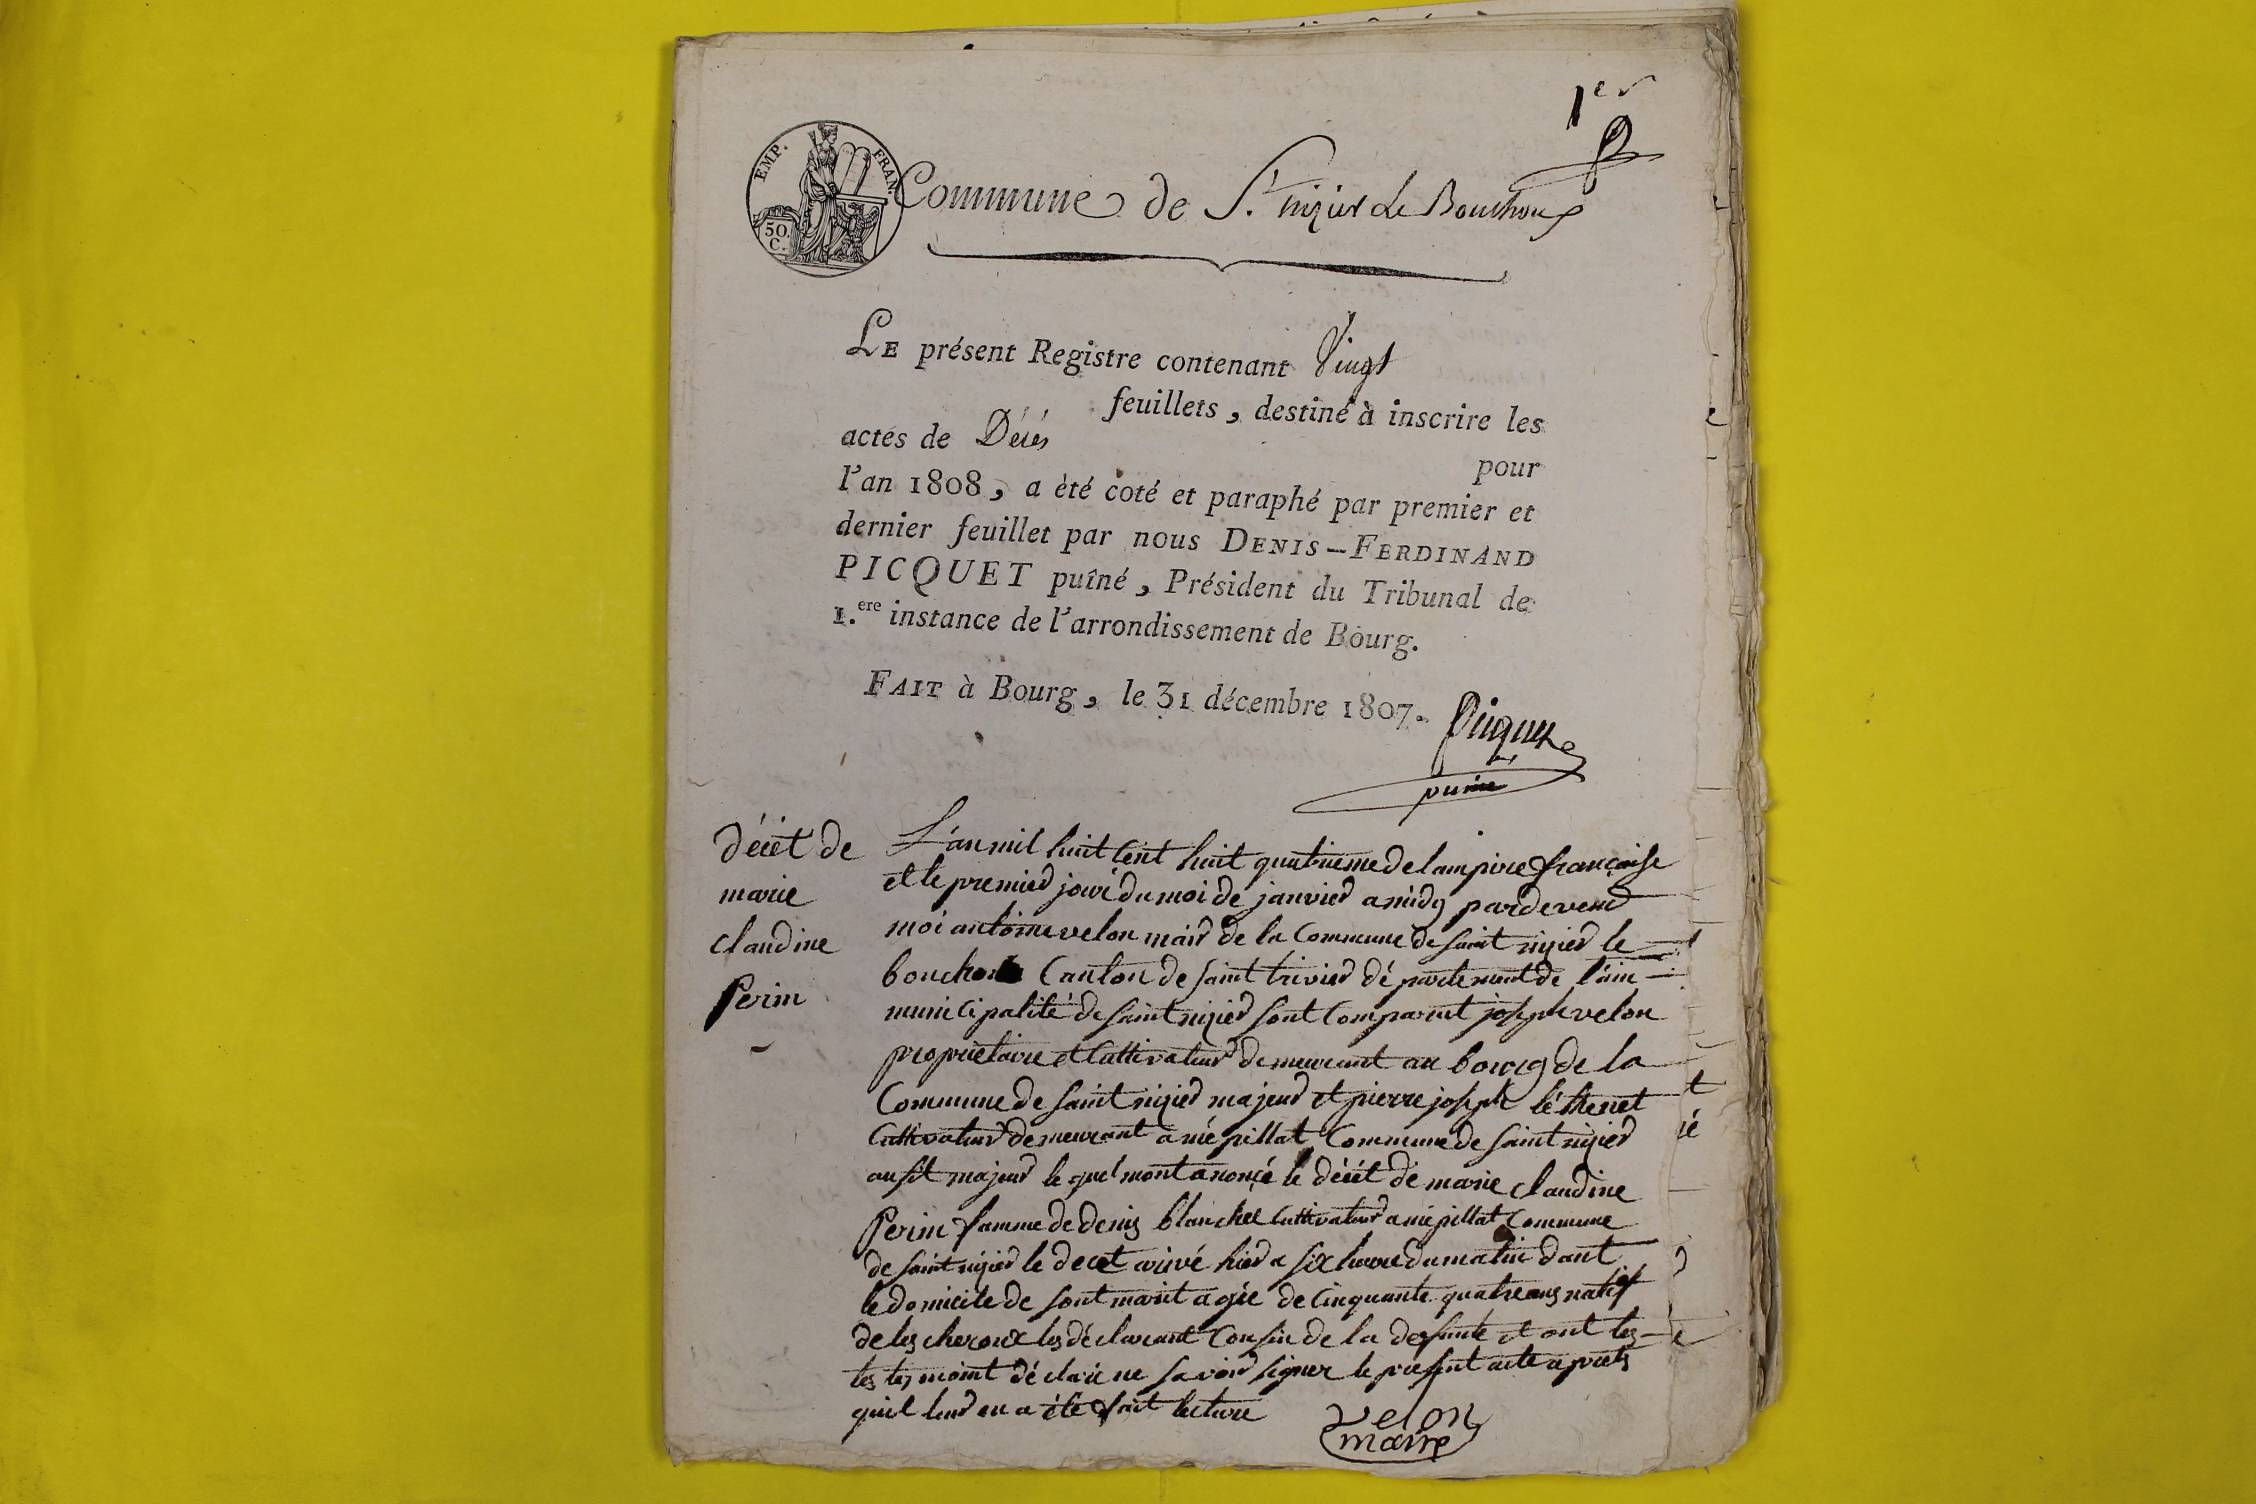 1er
EMP. FRAN.
50.
C.
Commune de St. nizier Le Bouchoux
LE présent Registre contenant Vingt
feuillets, destiné à inscrire les
actes de Décès
pour
l'an 1808, a èté coté et paraphé par premier et
dernier feuillet par nous DENIS-FERDINAND
PICQUET puîné, Président du Tribunal de
1.ere instance de l'arrondissement de Bourg.
FAIT à Bourg, le 31 décembre 1807.
Picquet
puiné
décèt de
marie
claudine
Perin
L'an mil huit cent huit quatrieme de lampire française
et le premier jour du moi de janvier a midy pardevent
moi antoine velon mair de la Commune de saint nizier le
bouchoux Canton de saint trivier département de l'ain
municipalité de saint nizier sont Comparut joseph velon
proprietaire et Cultivateur demeurant au bourg de la
Commune de saint nizier majeur et pierre joseph
Cultivateur demeurant a mépillat Commune de saint nizier
ausit majeur le quel mont anoncé le décèt de marie claudine
Perin famme de denis blanchet Cultivateur a mépillat Commune
de saint nizier le decet arivé hier a six heure du matin dant
le domicile de sont marit agée de Cinquante quatre ans natif
de les cheroux les déclarant Cousin de la defunte et ont les
les tesmoint déclaré ne savoir signer le present acte aprets
quil leur en a été fait lecture
velon
maire